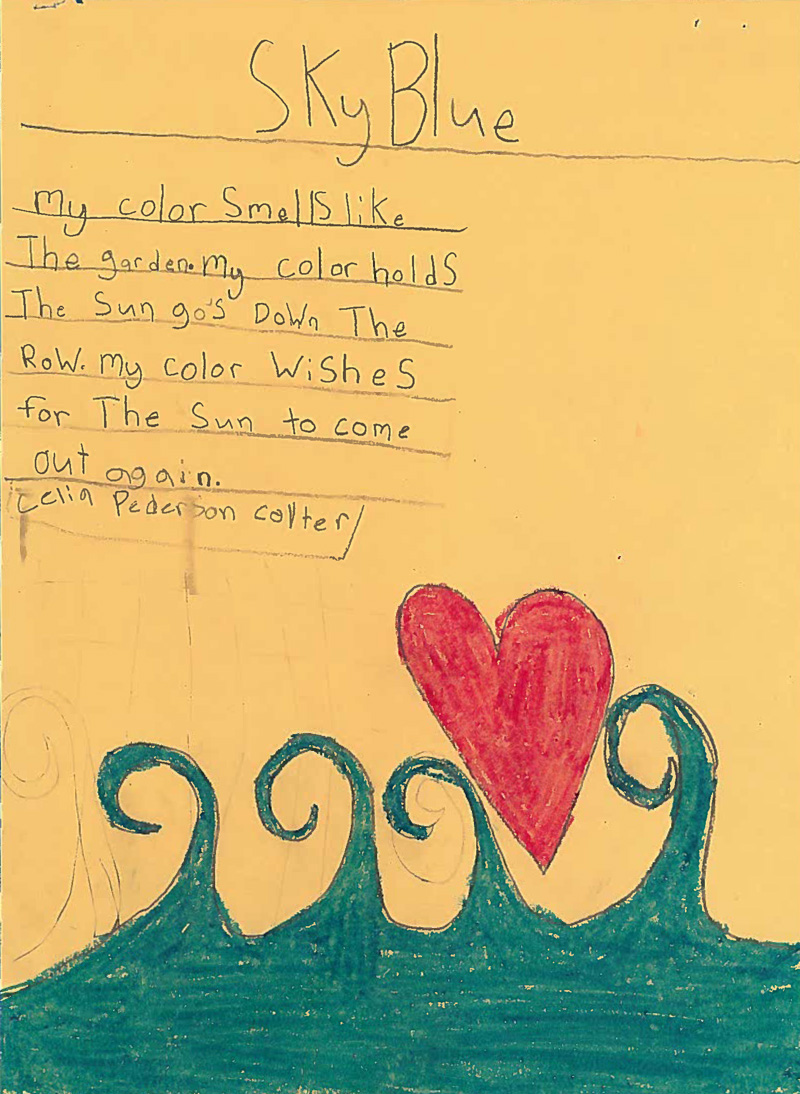 Sky Blue
My color Smells like
The garden. My color holdS
The Sun go's DoWn The
RoW. My color WiSheS
for The Sun to come
out again.
Celia Pederson colter